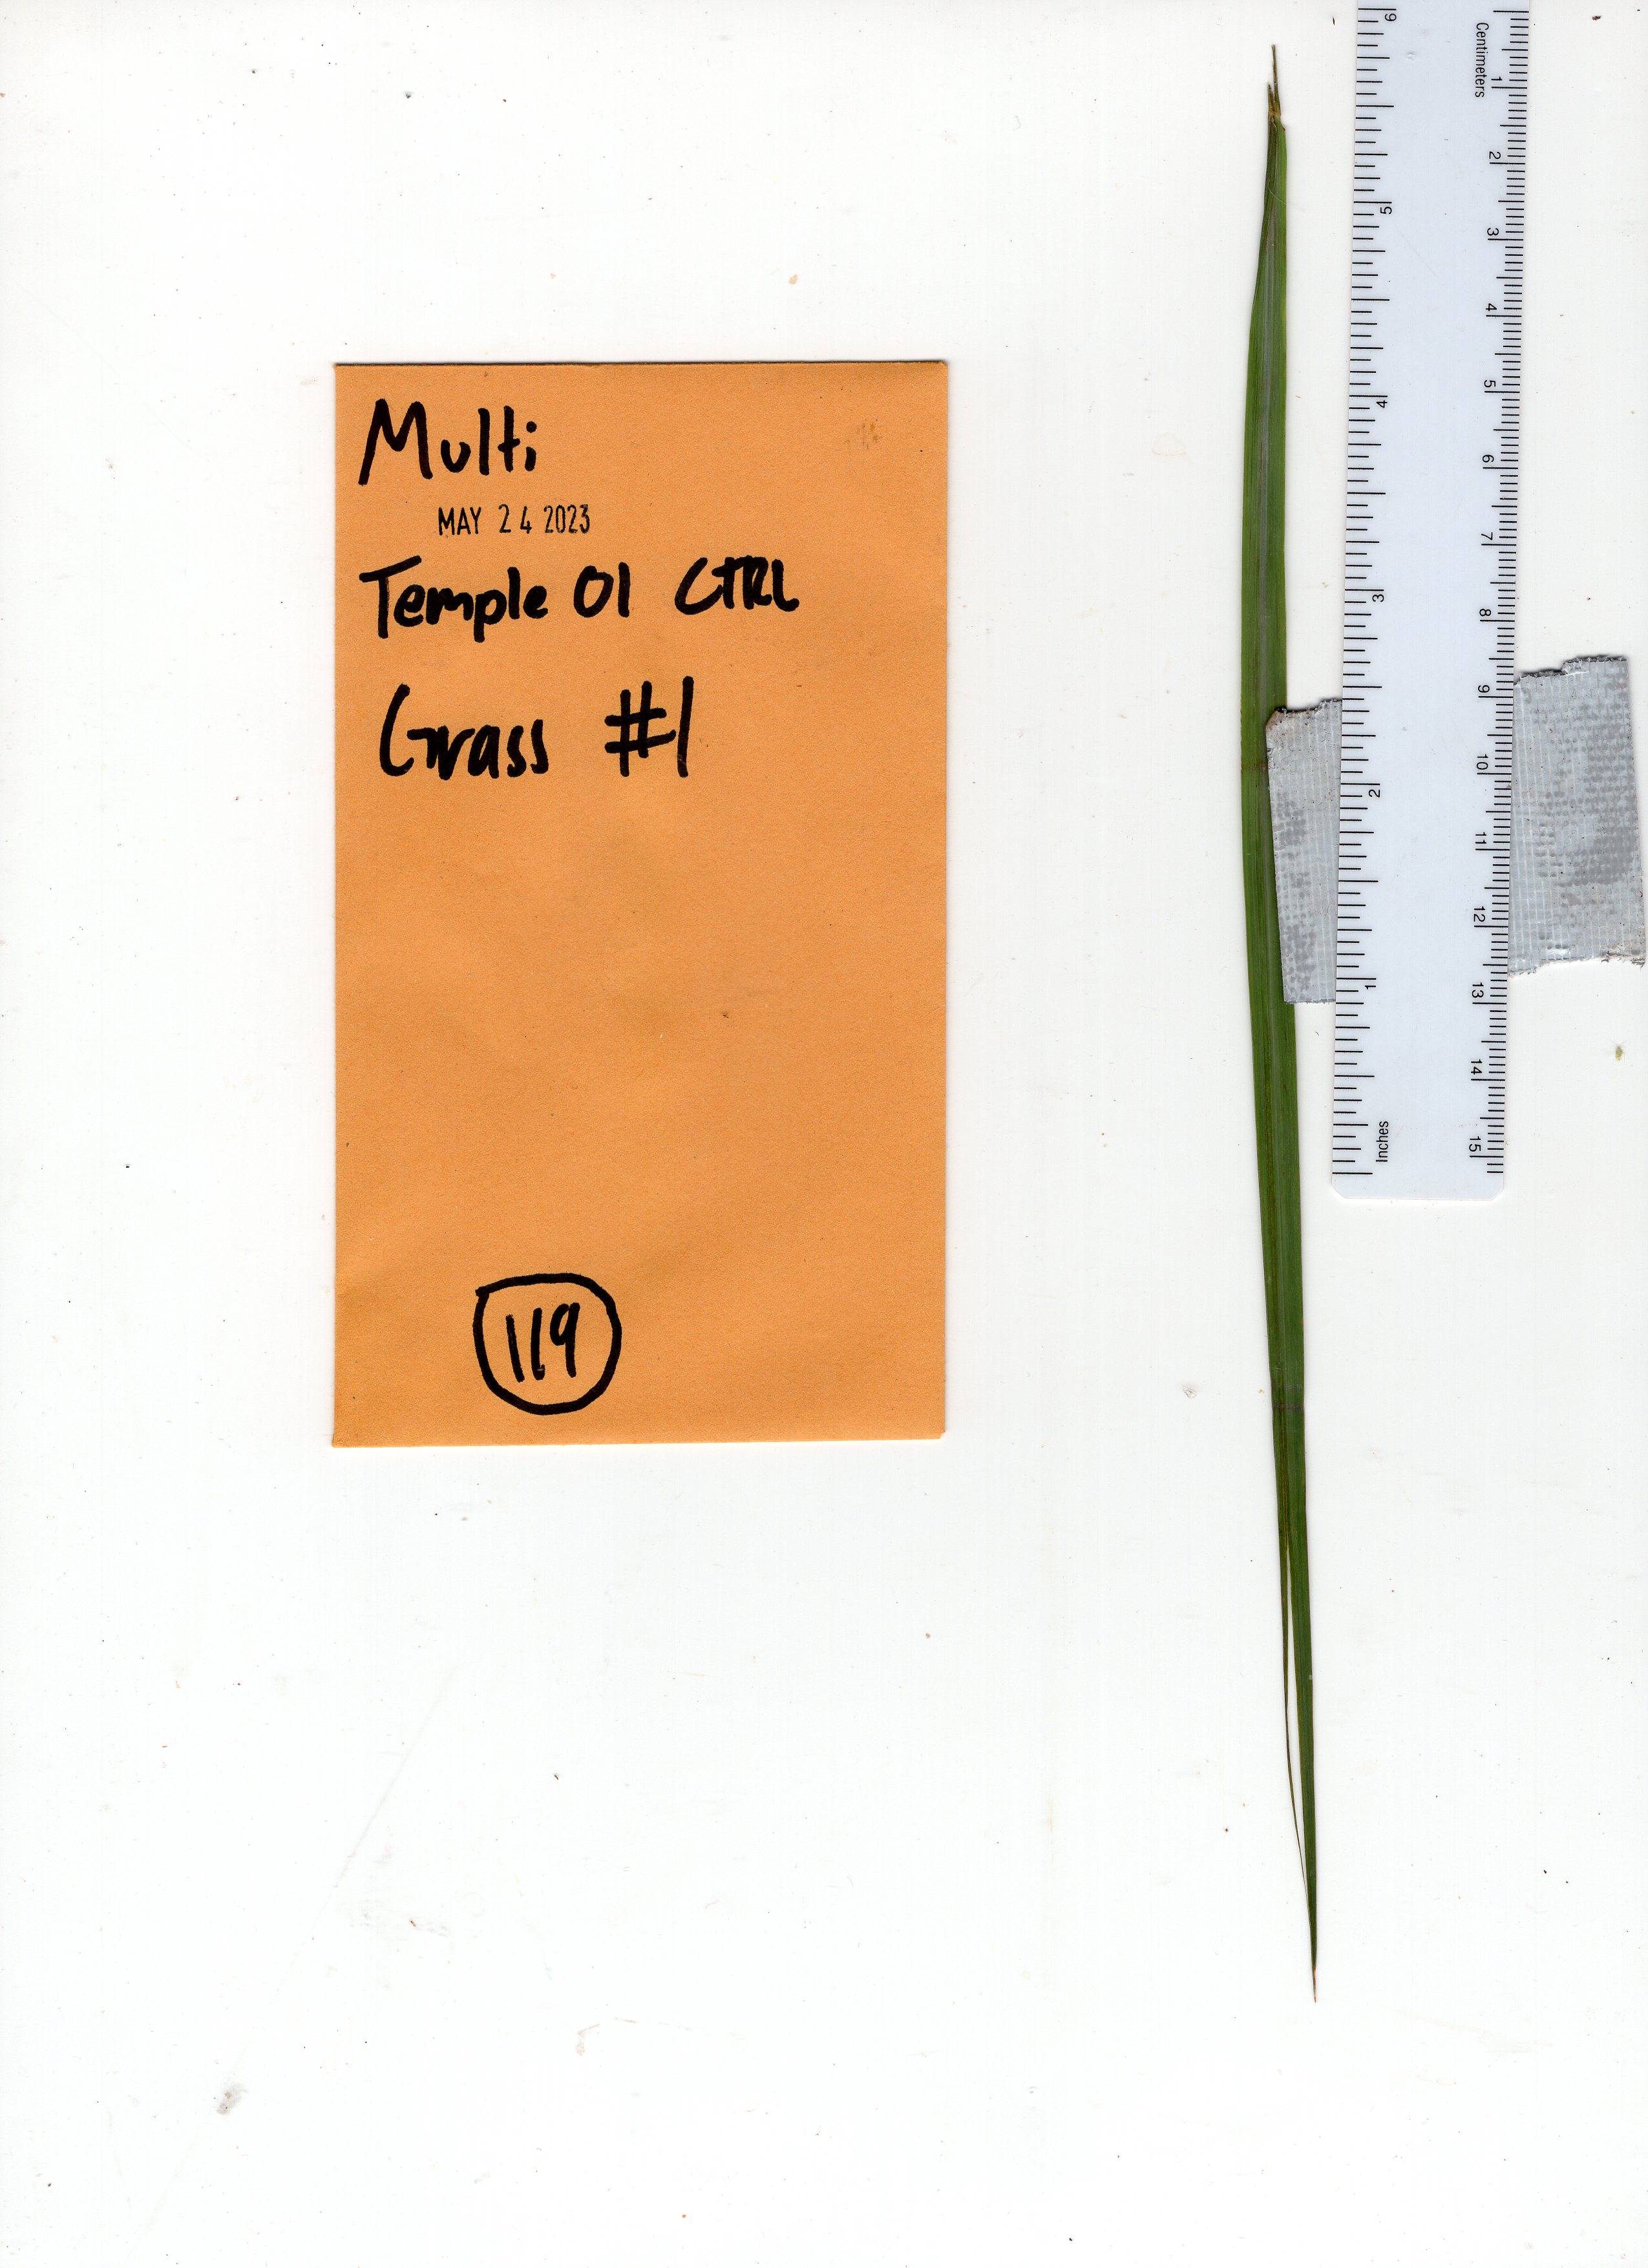 Multi
MAY 24 2023
Temple 01 CTRL
Grass #1
119
Centimeters
1 2 3 4 5 6 7 8 9 10 11 12 13 14 15
6 5 4 3 2 1
Inches